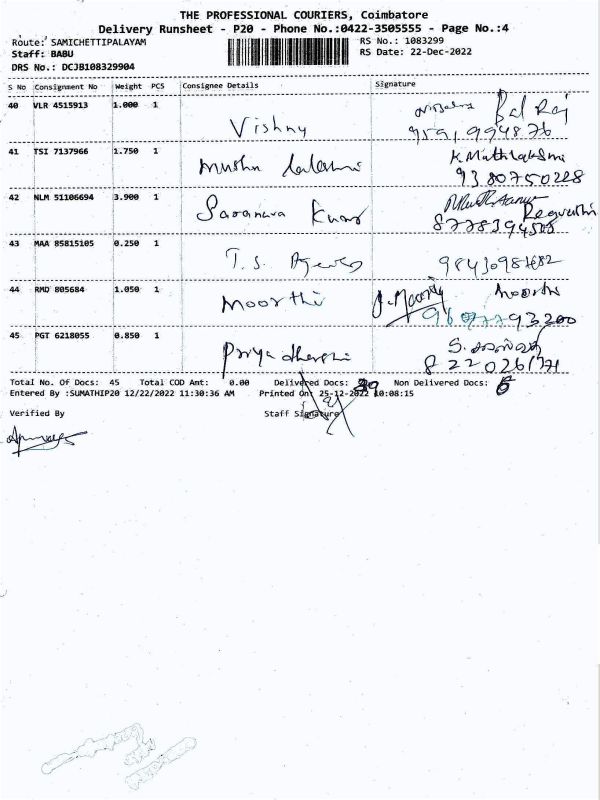 THE PROFESSIONAL COURIERS, Coimbatore
Delivery Runsheet - P20 - Phone No.:0422-3505555 - Page No.:4
Route: SAMICHETTIPALAYAM
Staff: BABU
DRS No.: DCJB108329904
RS No.: 1083299
RS Date: 22-Dec-2022
S No Consignment No Weight PCS Consignee Details Signature
40 VLR 4515913 1.000 1 Vishny Bal Raj
9591994876
41 TSI 7137966 1.750 1 K. Muthlakshmi
9380750228
42 NLM 51106694 3.900 1 Saranava Kumar
43 MAA 85815105 0.250 1 T.S.
44 RMD 805684 1.050 1 Moorthi J. Moorthy Moorthi
45 PGT 6218055 0.850 1 Priya dharshi
8220261771
Total No. Of Docs: 45 Total COD Amt: 0.00 Delivered Docs: 39 Non Delivered Docs: 6
Entered By :SUMATHIP20 12/22/2022 11:30:36 AM Printed On: 25-12-2022 10:08:15
Verified By Staff Signature